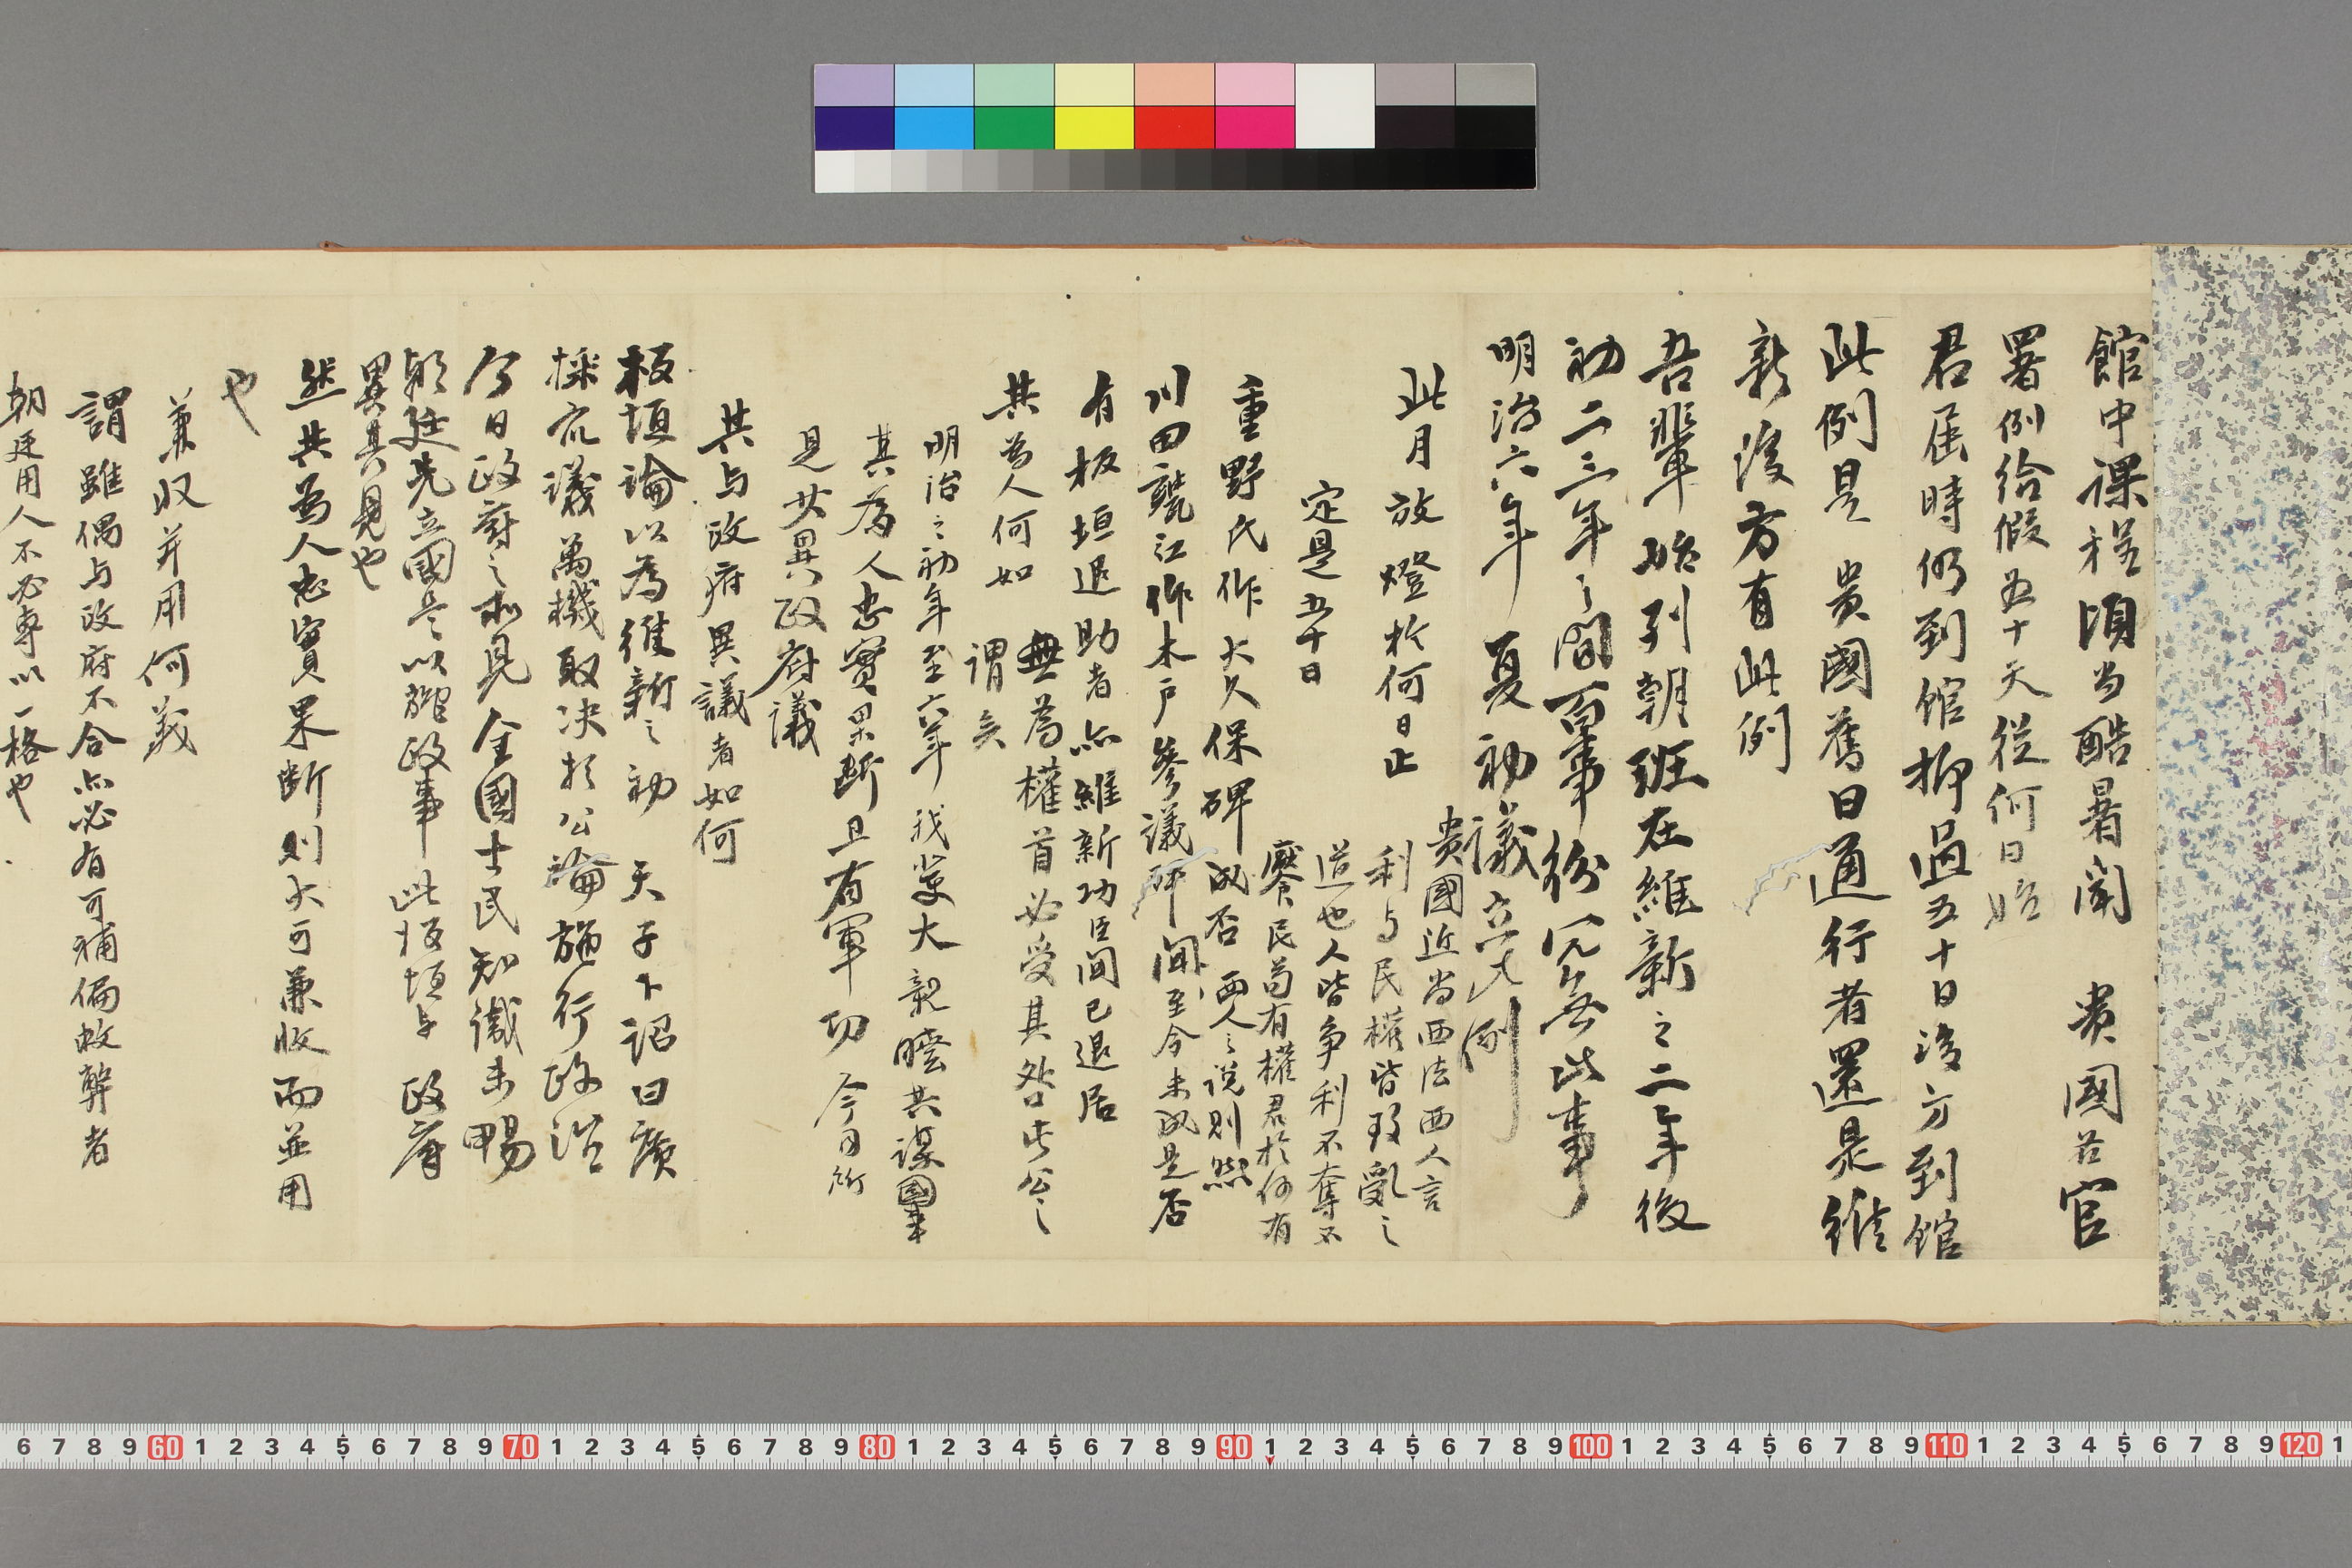 館中課程頃当酷暑聞　貴國各官
署例給假五十天従何日始
君届時仍到館抑過五十日後方到館
此例是　貴國舊日通行者還是維
新後方有此例
吾輩始列朝班在維新之二年後
初二三年之間百事紛冗無此事
明治六年夏初議立此例
此月放燈於何日止
貴國近尚西法西人言
利与民權皆致亂之
道也人皆争利不奪不
饜民苟有權君於何有
定是五十日
重野氏作大久保碑成否　両人之説則然
川田甕江作木戸參議碑聞至今未成是否
有板垣退助者亦維新功臣聞已退居
其為人何如
無為權首必受其咎此公之
謂矣
明治之初年至六年　我輩大親睦共謀國事
其為人忠實果断且有軍功　今日所
見共異政府議
其与政府異議者如何
板垣論以為維新之初　天子下詔曰廣
採衆議萬機取決於公論施行政治
今日政府之所見全國士民知識未暢
朝廷先立國是以施政事　此板垣与　政府
異其見也
然其為人忠實果断則大可兼收而並用
也
兼収并用何義
謂雖偶与政府不合亦必有可補偏救弊者
朝廷用人不必専以一格也